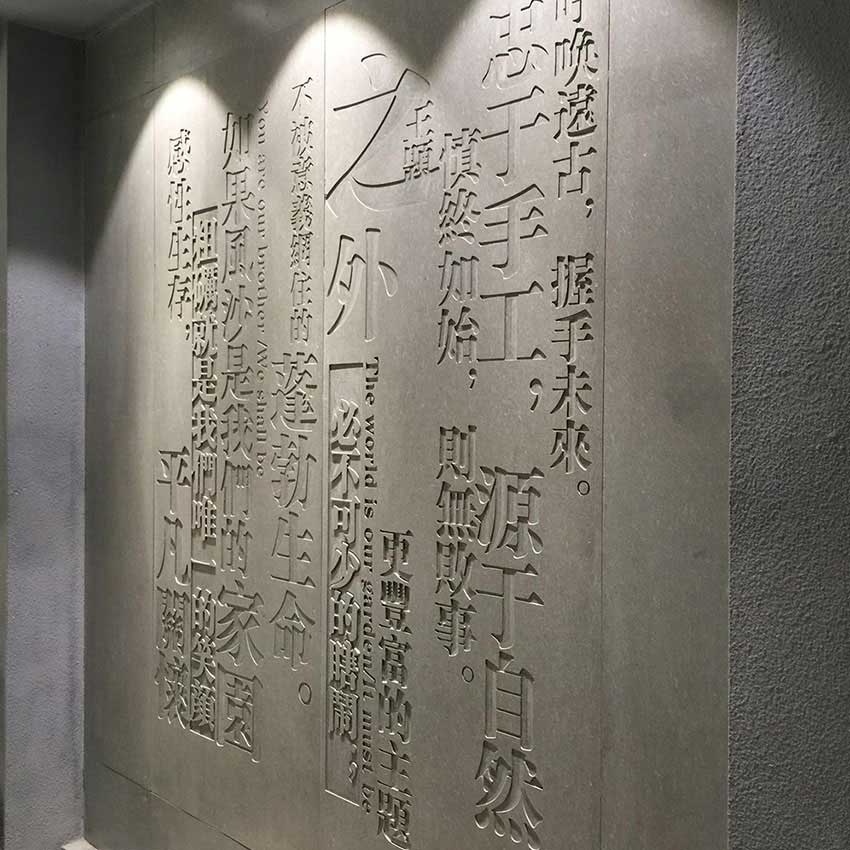 呼唤遠古，握手未來。
忠于手工，源于自然
慎終如始，則無敗事。
更豐富的主題
之外
The world is our garden/It must be
必不可少的瞎鬧，
不被意義網住的蓬勃生命。
You are our brother/We shall be
如果風沙是我們的家園
粗礪就是我們唯一的笑顏
感性生存，
平凡關懷